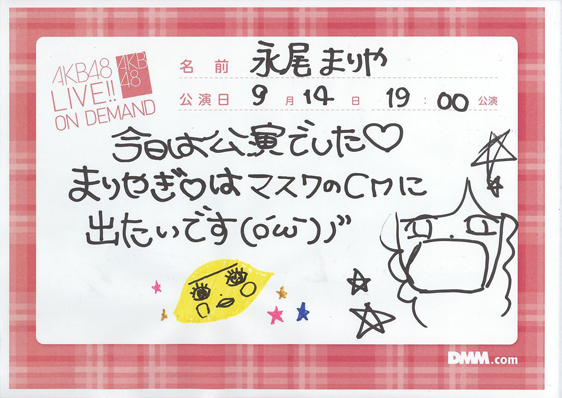 AKB48
LIVE!!
ON DEMAND
AKB
48
名前 永尾まりや
公演日 9月14日 19:00公演
今日は公演でした♡
まりやぎ♡はマスクのCMに
出たいです(o´ω`)ノ"
DMM.com